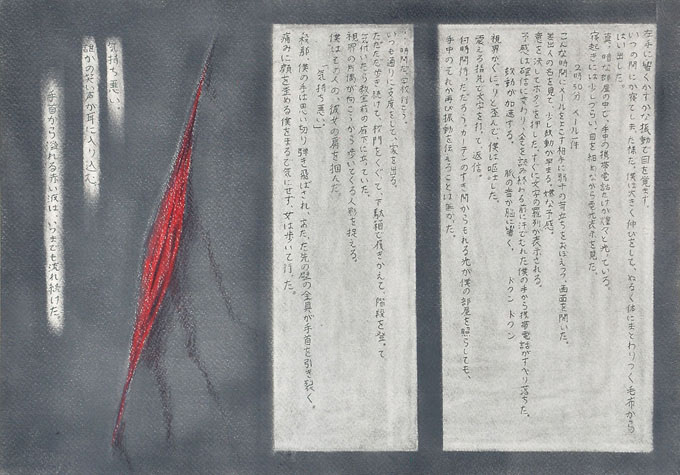 左手に響くかすかな振動で目を覚ます。
いつの間にか寝てしまった様だ。僕は大きく伸びをして、ぬるく体にまとわりつく毛布から
はい出した。
真暗な部屋の中で、手中の携帯電話だけが煌々と光っている。
寝起きには少しつらい。目を細めながら電光表示を見た。
2時50分 メール1件
こんな時間にメールをよこす相手に数十の苛立ちをおぼえつつ、画面を開いた。
差出人の名を見て、少し鼓動が早まる。嫌な予感。
意を決してボタンを押した。すぐに文字の羅列が表示される。
予感は確信に変わり、全てを読み終わる前に汗でむれた僕の手から携帯電話がすべり落ちた。
鼓動が加速する。 脈の音が脳に響く。 ドクン ドクン
視界がぐにゃりと歪んで、僕は嘔吐した。
震える指先で文字を打って返信。
何時間待っただろう。カーテンのすき間からもれる光が僕の部屋を照らしても、
手中のそれが再び振動を伝えることは無かった。
時間だ、学校行こう。
いつも通り支度をして、家を出る。
ただただ歩き続けて校門をくぐって、下駄箱で履きかえて、階段を登って
気付いたら教室前の廊下に立っていた。
視界の片隅が向こうから歩いてくる人影を捉える。
僕はその人の、彼女の肩を掴んだ。
「気持ち悪い」
刹那、僕の手は思い切り弾き飛ばされ、あたった先の壁の金具が手首を引き裂く。
痛みに顔を歪める僕をまるで気にせず、女は歩いて行った。
気持ち悪い。
誰かの笑い声が耳に入り込む。
手首から溢れる赤い液は、いつまでも流れ続けた。